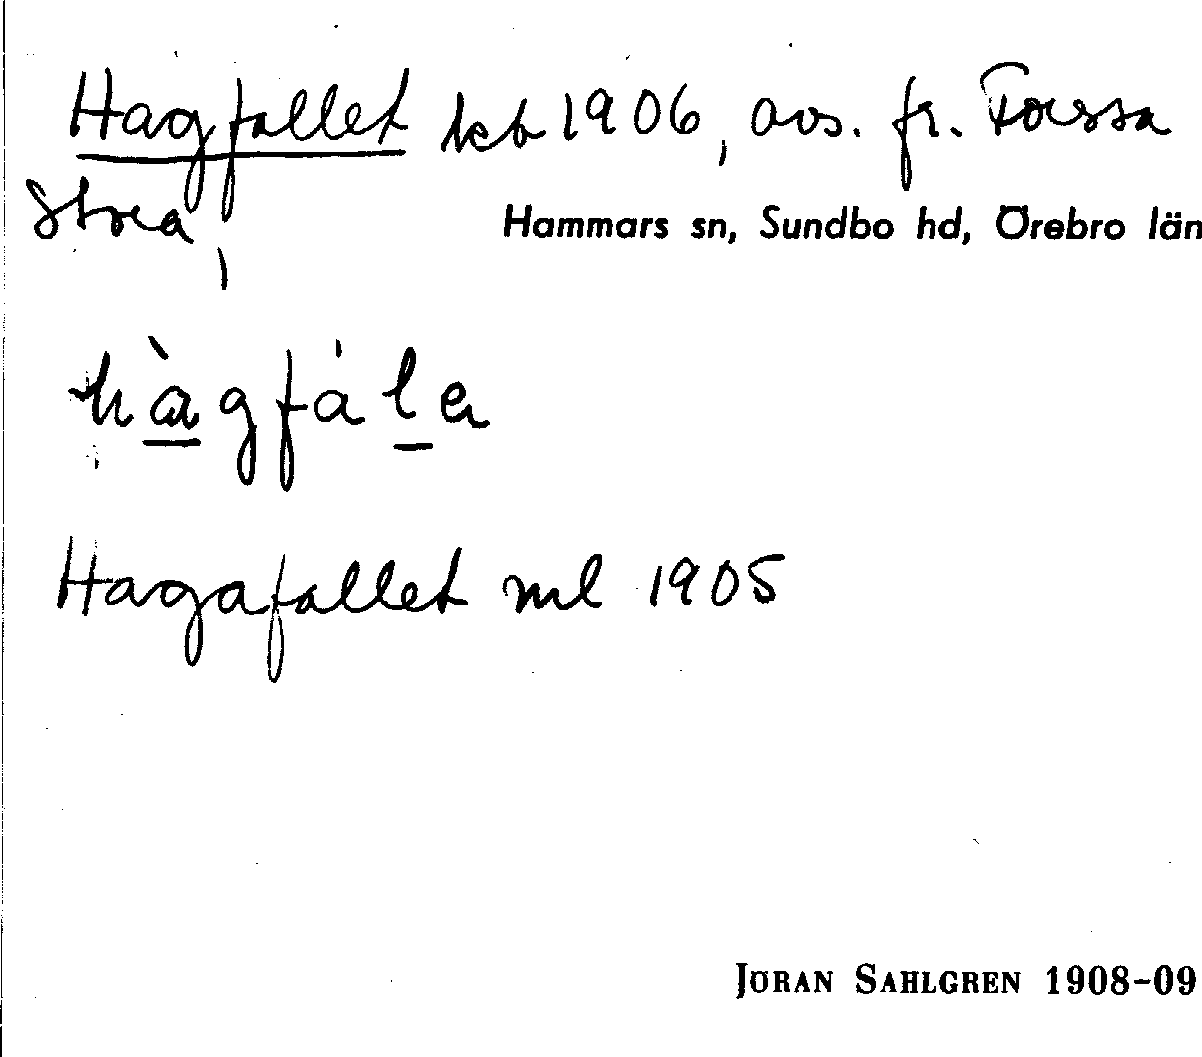 Hagfallet kb 1906, avs. fr. Forssa
Stora,
Hammars sn, Sundbo hd, Örebro län
hàgfálα
Hagafallet ml 1905
JÖRAN SAHLGREN 1908-09